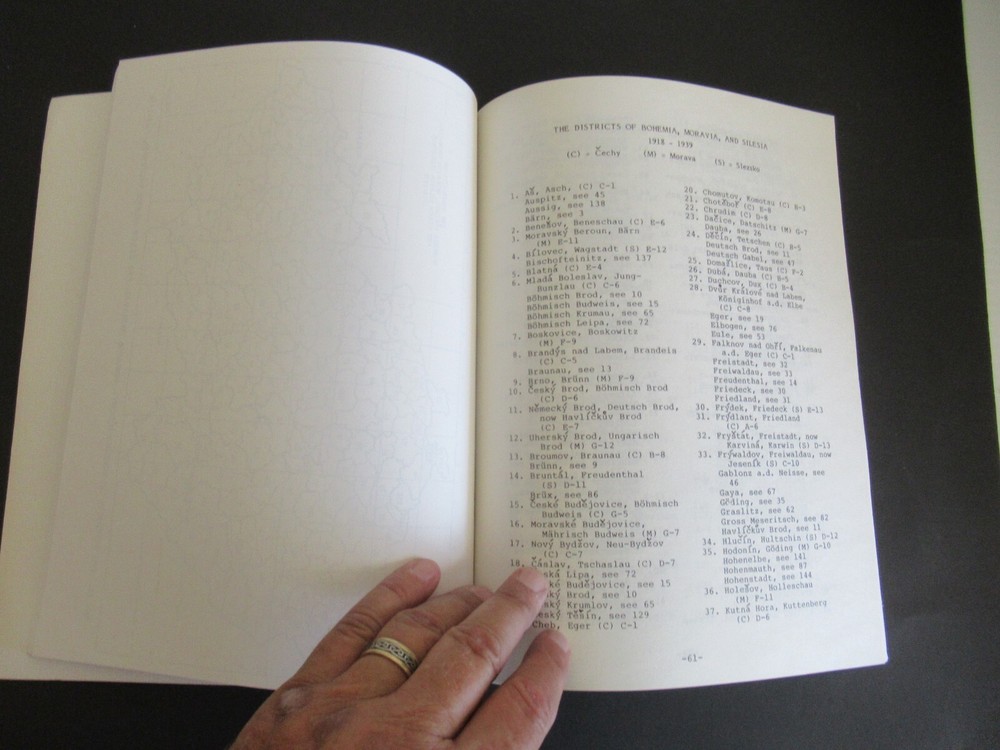 THE DISTRICTS OF BOHEMIA, MORAVIA, AND SILESIA
1918 - 1939
(C) = Čechy (M) = Morava (S) = Slezsko
1. Aš, Asch, (C) C-1
Auspitz, see 45
Aussig, see 138
Bärn, see 3
2. Benešov, Beneschau (C) E-6
3. Moravský Beroun, Bärn
(M) E-11
4. Bílovec, Wagstadt (S) E-12
Bischofteinitz, see 137
5. Blatná (C) E-4
6. Mladá Boleslav, Jung-
Bunzlau (C) C-6
Böhmisch Brod, see 10
Böhmisch Budweis, see 15
Böhmisch Krumau, see 65
Böhmisch Leipa, see 72
7. Boskovice, Boskowitz
(M) F-9
8. Brandýs nad Labem, Brandeis
(C) C-5
Braunau, see 13
9. Brno, Brünn (M) F-9
10. Český Brod, Böhmisch Brod
(C) D-6
11. Německý Brod, Deutsch Brod,
now Havlíčkův Brod
(C) E-7
12. Uherský Brod, Ungarisch
Brod (M) G-12
13. Broumov, Braunau (C) B-8
Brünn, see 9
14. Bruntál, Freudenthal
(S) D-11
Brüx, see 86
15. České Budějovice, Böhmisch
Budweis (C) G-5
16. Moravské Budějovice,
Mährisch Budweis (M) G-7
17. Nový Bydžov, Neu-Bydžov
(C) C-7
18. Čáslav, Tschaslau (C) D-7
ská Lípa, see 72
ké Budějovice, see 15
ký Brod, see 10
ký Krumlov, see 65
ský Těšín, see 129
Cheb, Eger (C) C-1
20. Chomutov, Komotau (C) B-3
21. Chotěboř (C) E-8
22. Chrudim (C) D-8
23. Dačice, Datschitz (M) G-7
Dauba, see 26
24. Děčín, Tetschen (C) B-5
Deutsch Brod, see 11
Deutsch Gabel, see 47
25. Domažlice, Taus (C) F-2
26. Dubá, Dauba (C) B-5
27. Duchcov, Dux (C) B-4
28. Dvůr Králové nad Labem,
Königinhof a.d. Elbe
(C) C-8
Eger, see 19
Elbogen, see 76
Eule, see 53
29. Falknov nad Ohří, Falkenau
a.d. Eger (C) C-1
Freistadt, see 32
Freiwaldau, see 33
Freudenthal, see 14
Friedeck, see 30
Friedland, see 31
30. Frýdek, Friedeck (S) E-13
31. Frýdlant, Friedland
(C) A-6
32. Fryštát, Freistadt, now
Karviná, Karwin (S) D-13
33. Frývaldov, Freiwaldau, now
Jeseník (S) C-10
Gablonz a.d. Neisse, see
46
Gaya, see 67
Göding, see 35
Graslitz, see 62
Gross Meseritsch, see 82
Havlíčkův Brod, see 11
34. Hlučín, Hultschin (S) D-12
35. Hodonín, Göding (M) G-10
Hohenelbe, see 141
Hohenmauth, see 87
Hohenstadt, see 144
36. Holešov, Holleschau
(M) F-11
37. Kutná Hora, Kuttenberg
(C) D-6
-61-